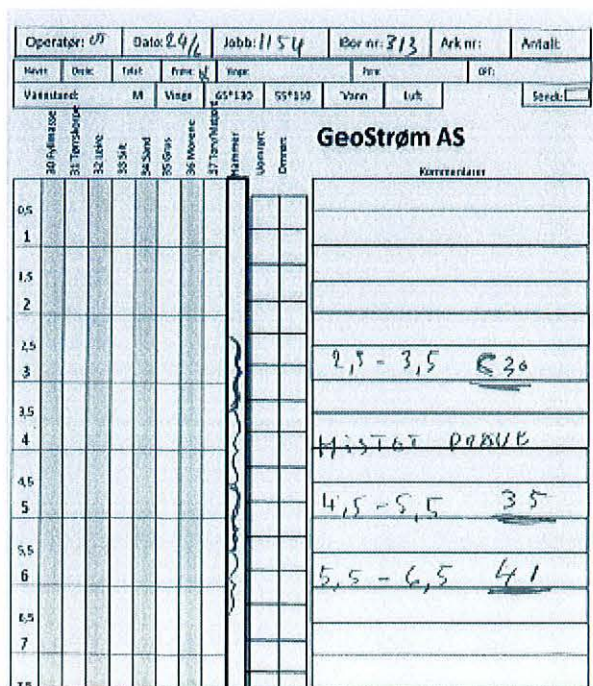 Operatør: Dato: 24/6 Jobb: 1154 Bor nr: 313 Ark nr: Antall:
Navet: Dreie: Total: Prøve: Vinge: Pore: CPT:
Vannstand: M Vinge 65*130 55*110 Vann Luft Sendt:
30 Fyllmasse
31 Tørrskorpe
32 Leire
33 Silt
34 Sand
35 Grus
36 Morene
37 Torv/Matjord
Hammer
Uomrørt
Omrørt
GeoStrøm AS
Kommentarer
0,5
1
1,5
2
2,5
2,5 - 3,5 C30
3
3,5
4
MISTET PRØVE
4,5
4,5 - 5,5 35
5
5,5
5,5 - 6,5 41
6
6,5
7
7,5